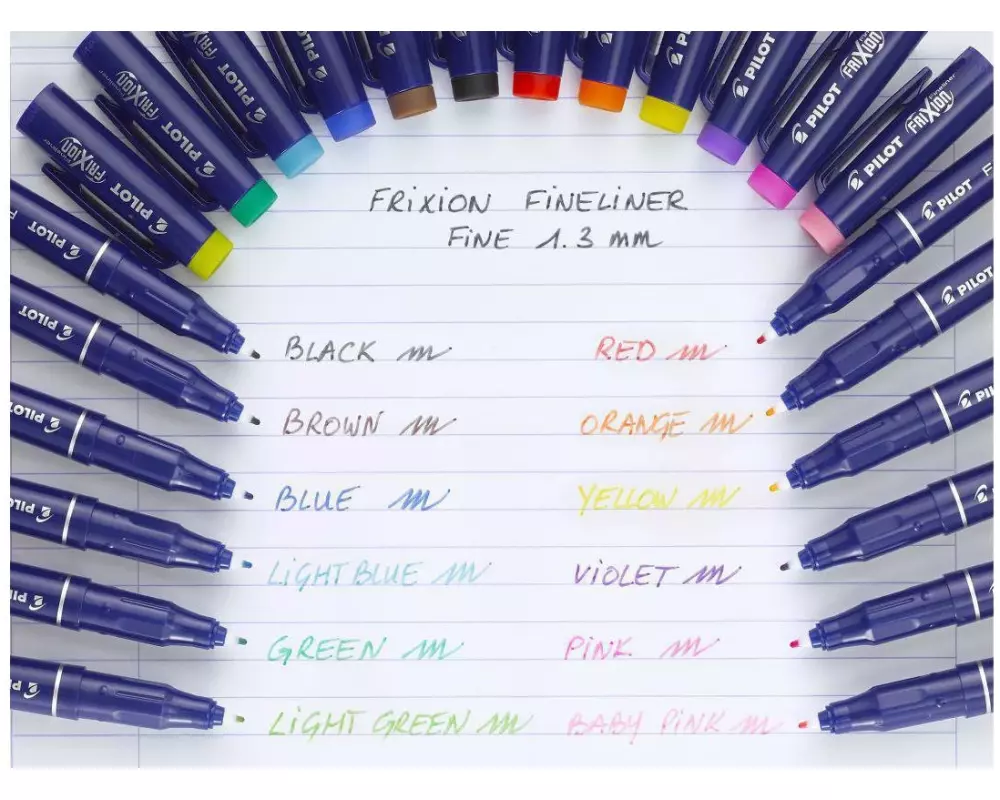 PILOT FRIXION
PILOT FRIXION
PILOT FRIXION
PILOT
PILOT
PILOT FRIXION
PILOT FRIXION
FRIXION FINELINER
FINE 1.3 mm
PILOT
PILOT
PILOT
PILOT
PILOT
BLACK
RED
BROWN
ORANGE
BLUE
YELLOW
LIGHT BLUE
VIOLET
GREEN
PINK
LIGHT GREEN
BABY PINK